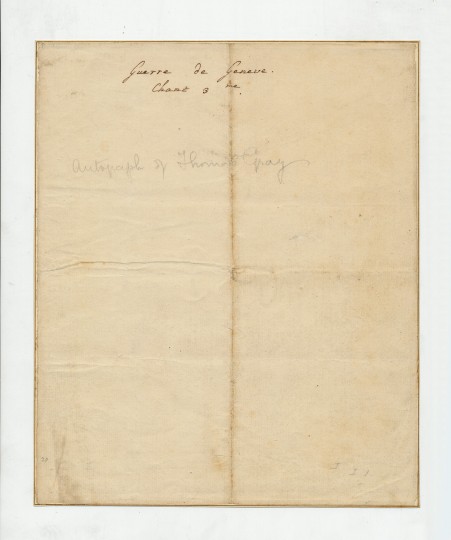 Guerre de Geneve.
Chant 3 me.
Autograph of Thomas Gray